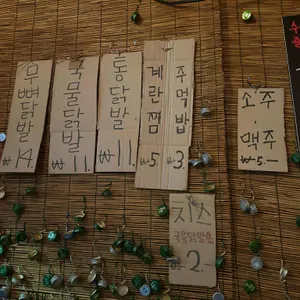 무뼈닭발
₩14.
국물닭발
₩11.
통닭발
₩11.
계란찜
₩5
주먹밥
₩3.
소주
·
맥주
₩5-
치즈
₩2.